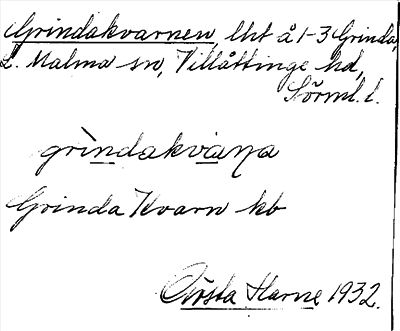 Grindakvarnen, lht å 1-3 Grinda,
L. Malma sn, Villåttinge hd,
Sörml. l.
grindakvaṇa
Grinda Kvarn kb
Gösta Harne 1932.